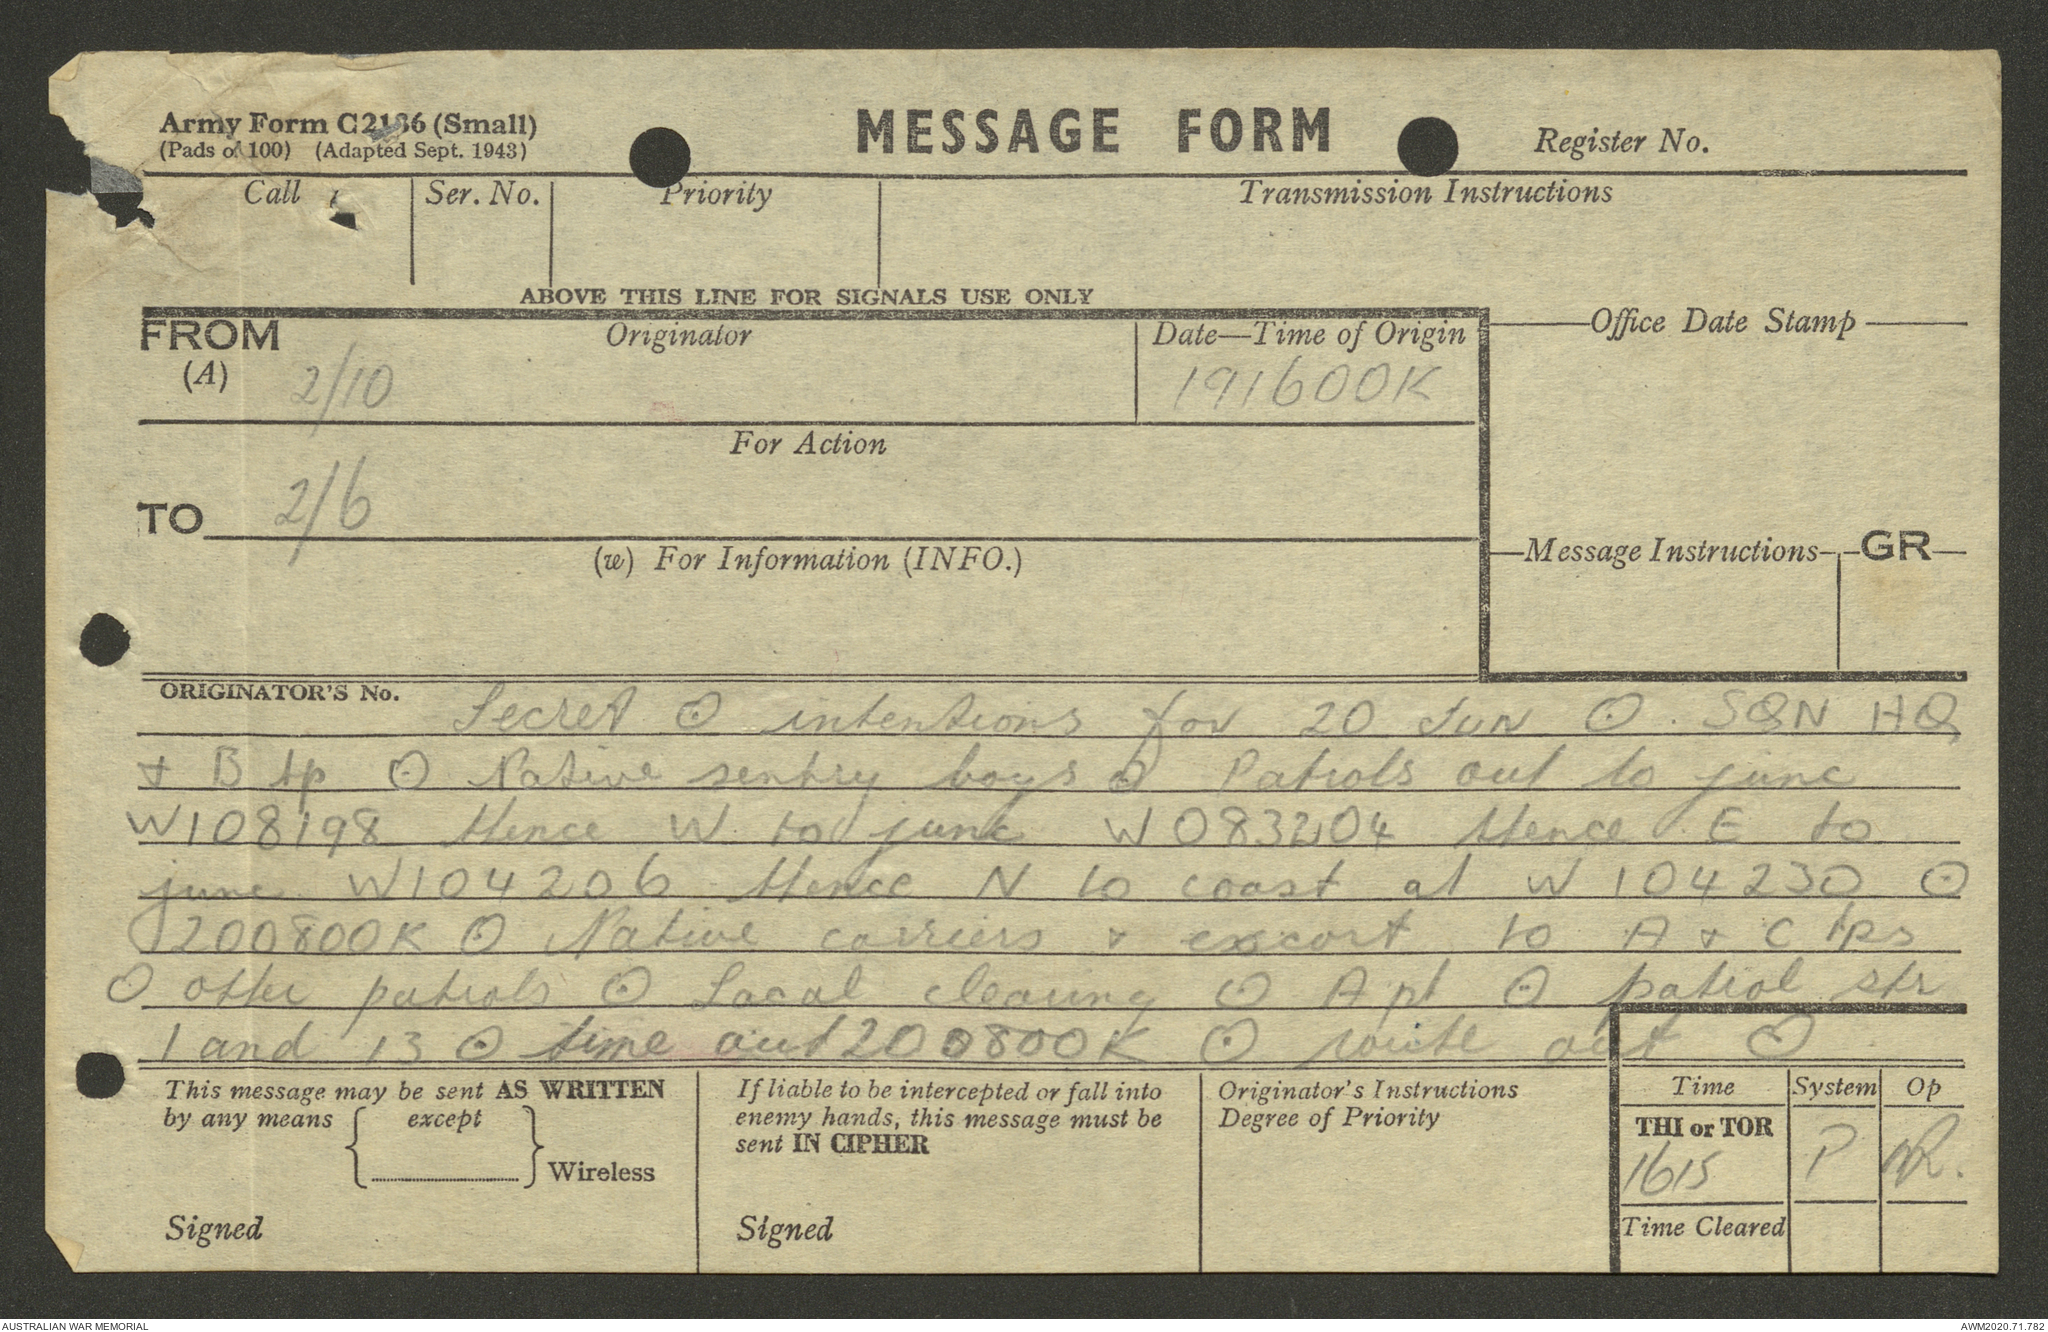 Army Form C2136 (Small)
(Pads of 100) (Adapted Sept. 1943)
MESSAGE FORM
Register No.
Call
Ser. No.
Priority
Transmission Instructions
ABOVE THIS LINE FOR SIGNALS USE ONLY
FROM
(A)
Originator
2/10
Date—Time of Origin
191600K
Office Date Stamp
For Action
TO
2/6
(w) For Information (INFO.)
Message Instructions
GR
ORIGINATOR'S No.
Secret O intentions for 20 JUN O. SQN HQ
+ B tp O Native sentry boys O Patrols out to junc
W108198 thence W to junc W083204 thence E to
junc W104206 thence N to coast at W104230 O
200800K O Native carriers + escort to A + C tps
O other patrols O Local clearing O A pl O patrol str
1 and 13 O time out 200800K O route out O
This message may be sent AS WRITTEN
by any means except
Wireless
Signed
If liable to be intercepted or fall into
enemy hands, this message must be
sent IN CIPHER
Signed
Originator's Instructions
Degree of Priority
Time
System
Op
THI or TOR
1615
P
Time Cleared
AUSTRALIAN WAR MEMORIAL
AWM2020.71.782